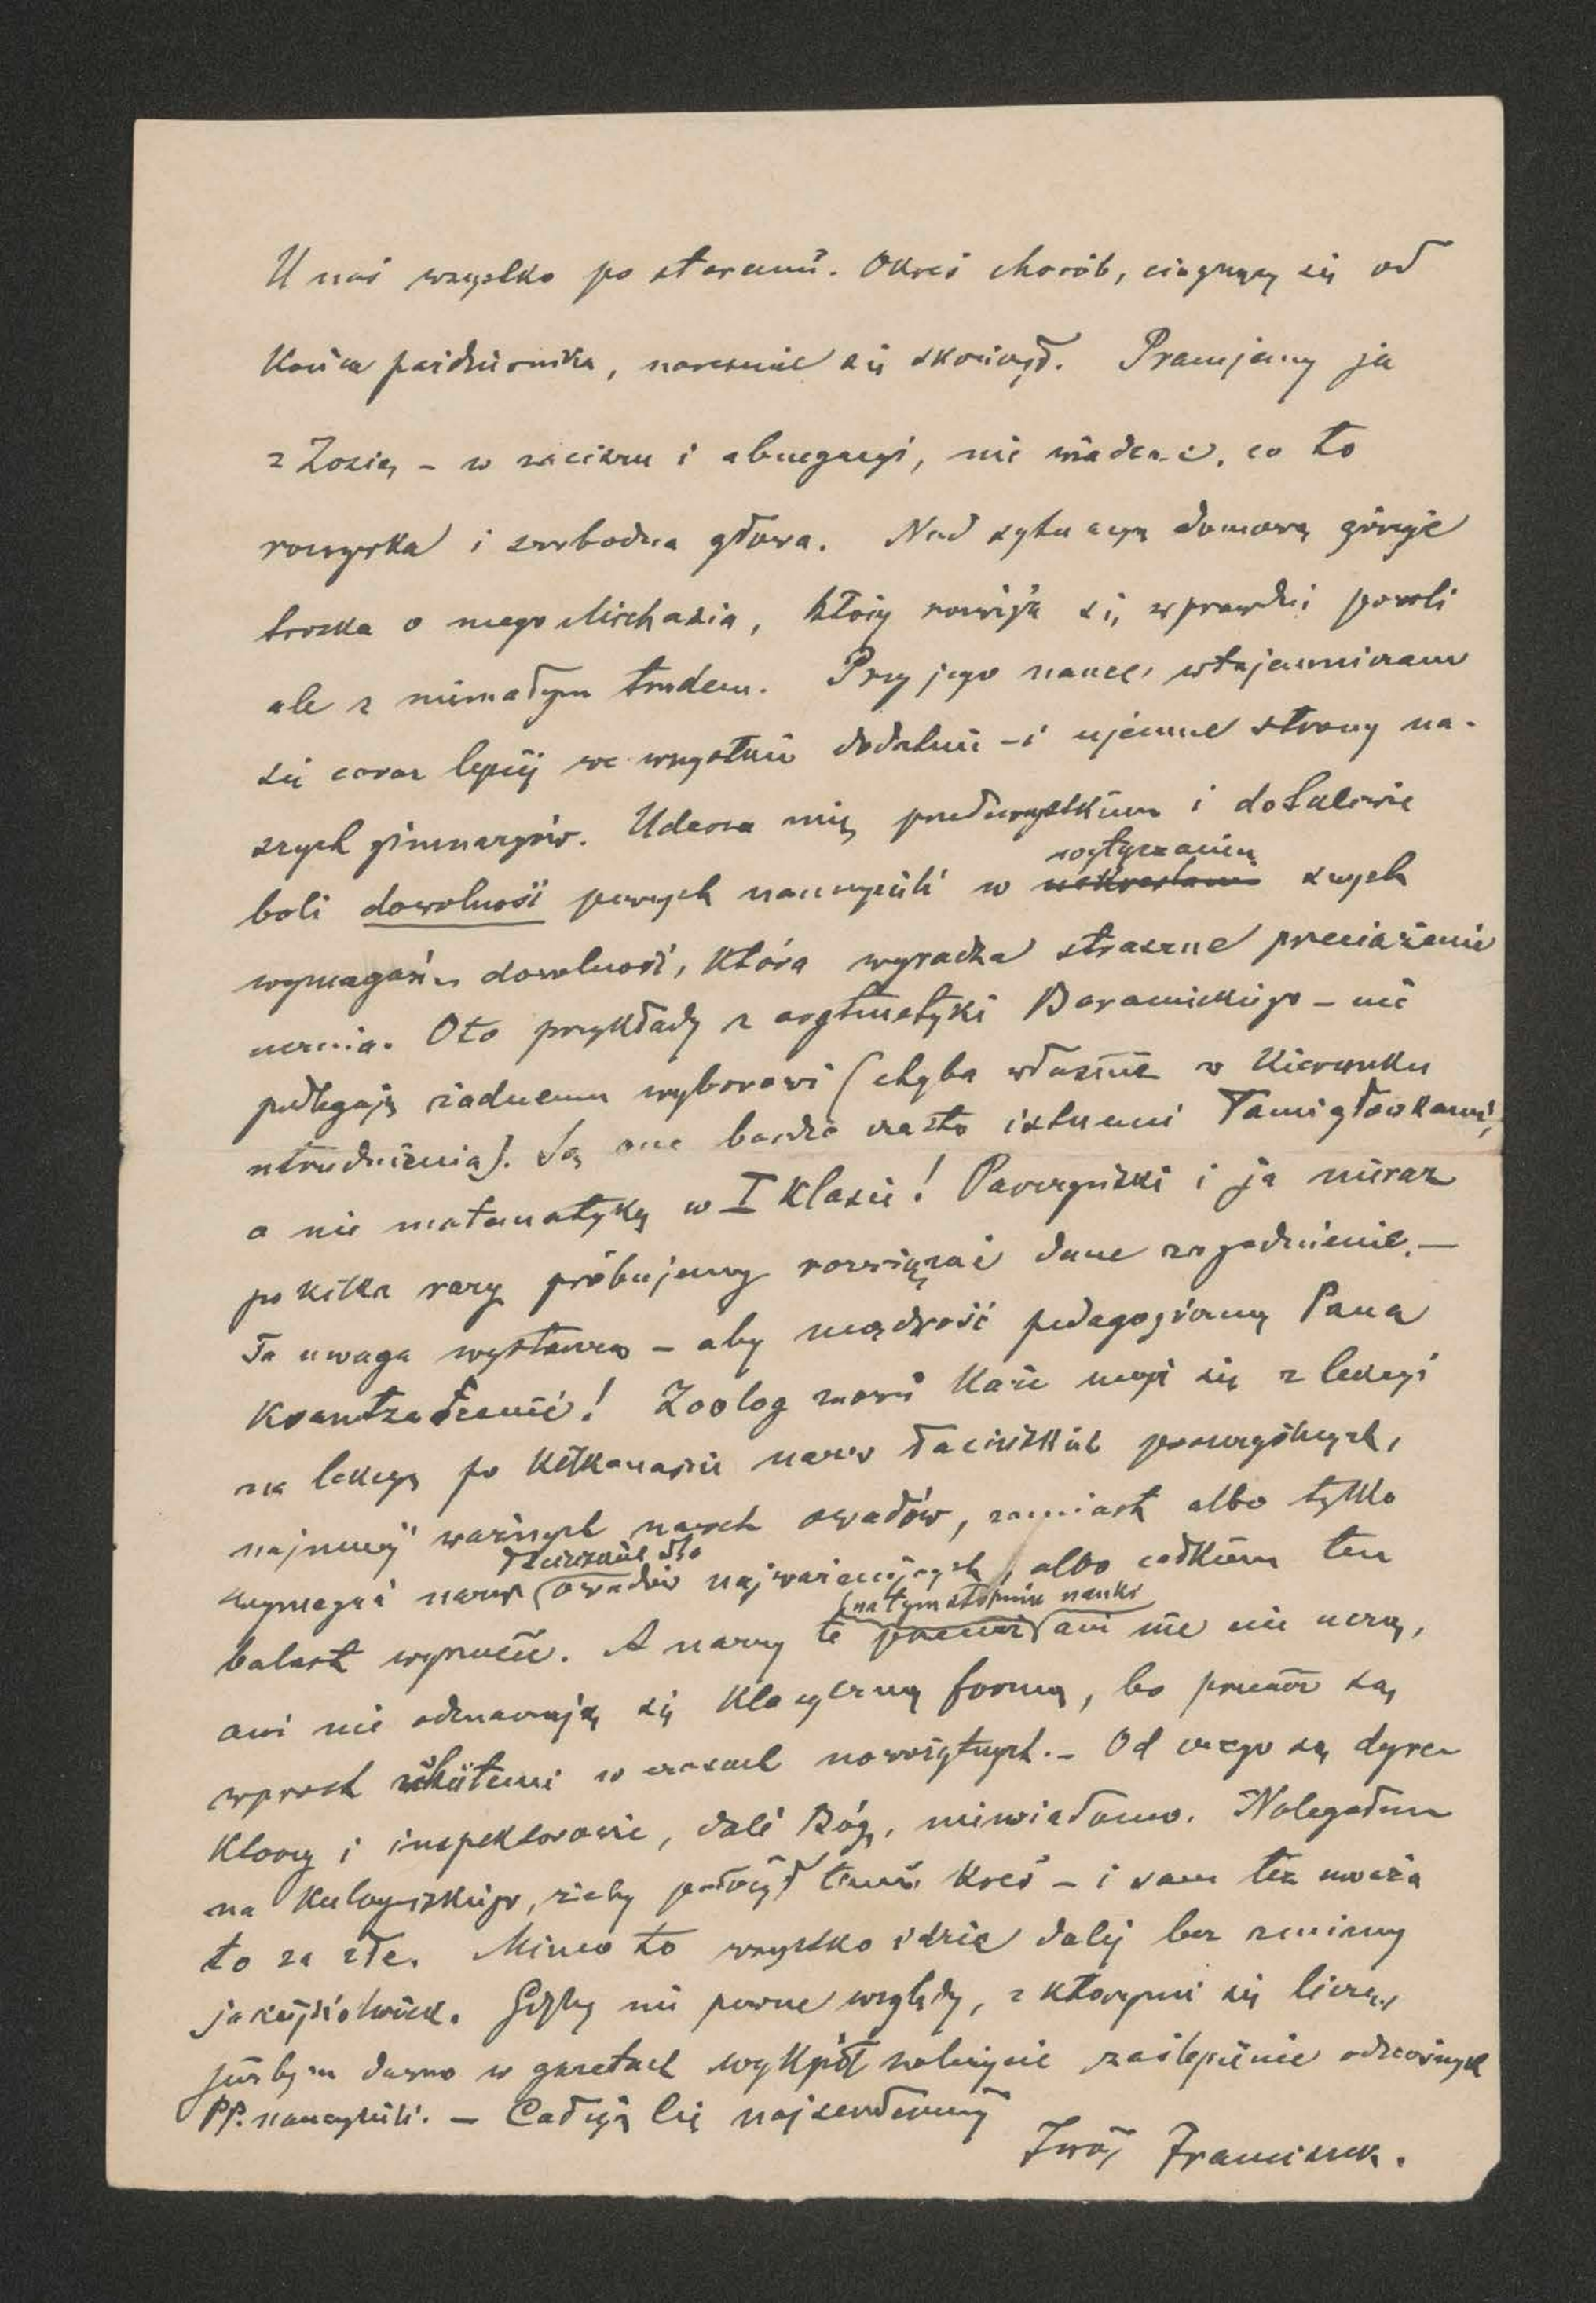 U nas wszystko po staremu. Okres chorób, ciągnący się od
końca października, nareszcie się skończył. Pracujemy ja
z Zosią – w zaciszu i abnegacyi, nie wiedząc, co to
rozrywka i swobodna głowa. Nad sytuacyą domową góruje
troska o mego Michasia, który rozwija się wprawdzie powoli
ale z niemałym trudem. Przy jego nauce, wtajemniczam
się coraz lepiej we wszystkie dodatnie – i ujemne strony na-
szych gimnazyów. Uderza mię przedewszystkiem i dotkliwie
boli dowolność pewnych nauczycieli w wytyczaniu swych
wymagań – dowolność, która wyradza straszne przeciążenie
ucznia. Oto przykłady z arytmetyki Baranieckiego – nie
podlegają żadnemu wyborowi (chyba właśnie w kierunku
utrudnienia). Są one bardzo często istnemi łamigłówkami,
a nie matematyką w I klasie! Pawczyński i ja nieraz
po kilka razy próbujemy rozwiązać dane zagadnienie. –
Ta uwaga wystarcza – aby mądrość pedagogiczną Pana
! Zoolog znowu każe uczyć się z lekcyi
na lekcyę po kilkanaście nazw łacińskich poszczególnych,
najmniej ważnych nazw owadów, zamiast albo tylko
wymagać nazw owadów najważniejszych, albo całkiem ten
balast wyrzucić. A nazwy te (na tym stopniu nauki) ani nie nie uczą,
ani nie odznaczają się klasyczną formą, bo przecież są
wprost ukute w czasach nowożytnych. – Od czego są dyre-
ktorzy i inspektorowie, dali Bóg, niewiadomo. Nalegałem
na , żeby położył temu kres – i sam też uważa
to za złe. Mimo to wszystko idzie dalej bez zmiany
jakiejkolwiek. Gdyby nie pewne względy, z któremi się liczę,
jużbym dawno w gazetach wykpił należycie zaślepienie odnośnych
PP. nauczycieli. – Całuję Cię najserdeczniej
Twój Franciszek.